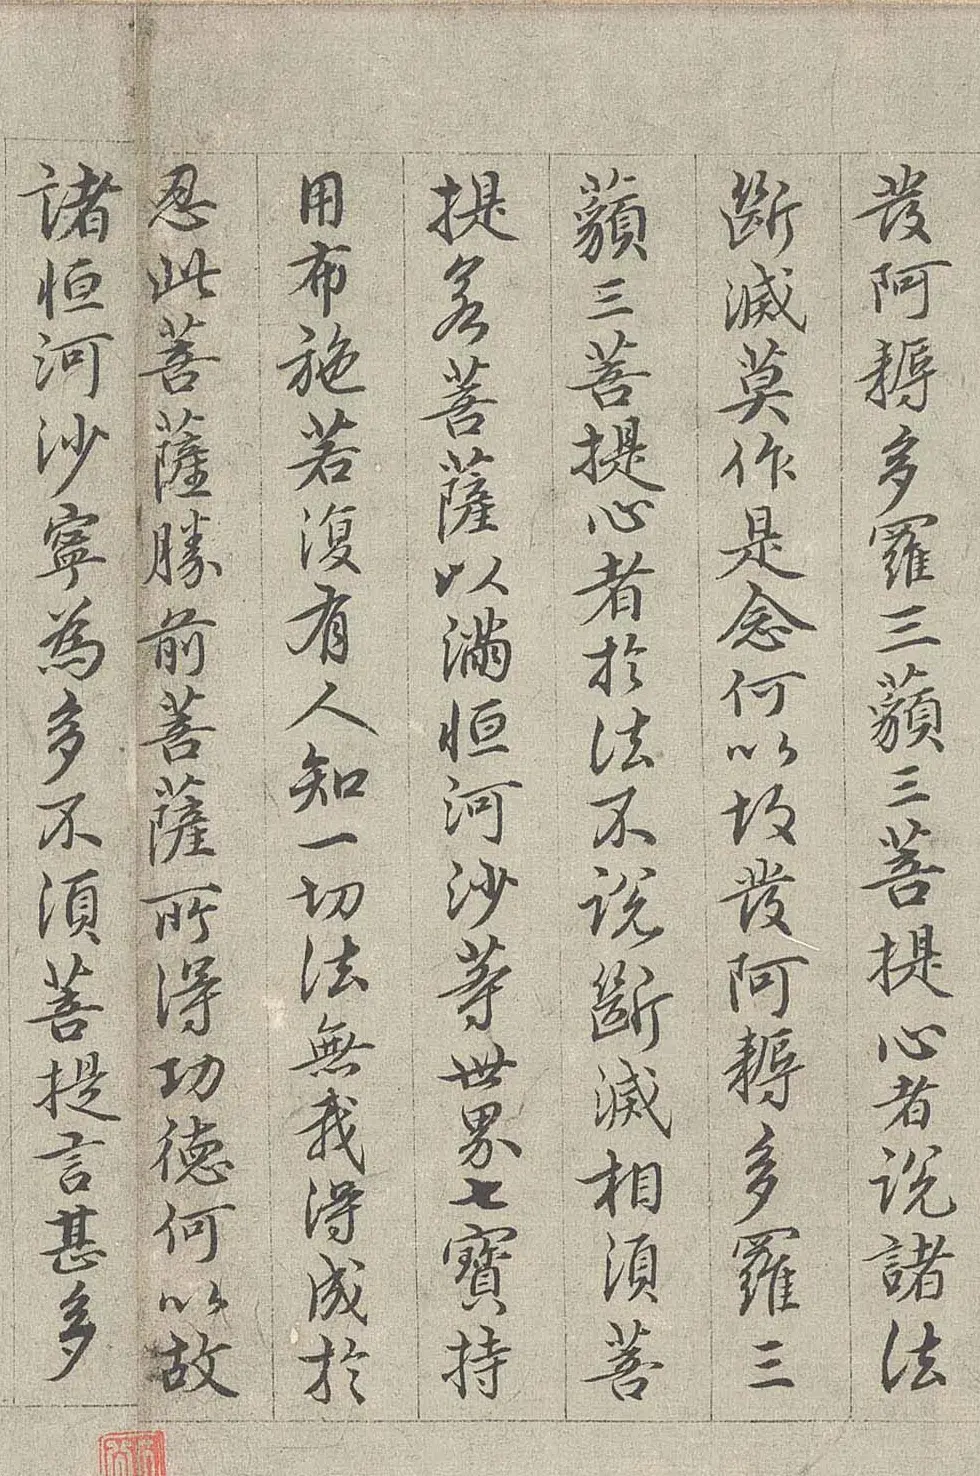 發阿耨多羅三藐三菩提心者說諸法
斷滅莫作是念何以故發阿耨多羅三
藐三菩提心者於法不說斷滅相須菩
提若菩薩以滿恒河沙等世界七寶持
用布施若復有人知一切法無我得成於
忍此菩薩勝前菩薩所得功德何以故
諸恒河沙寧為多不須菩提言甚多